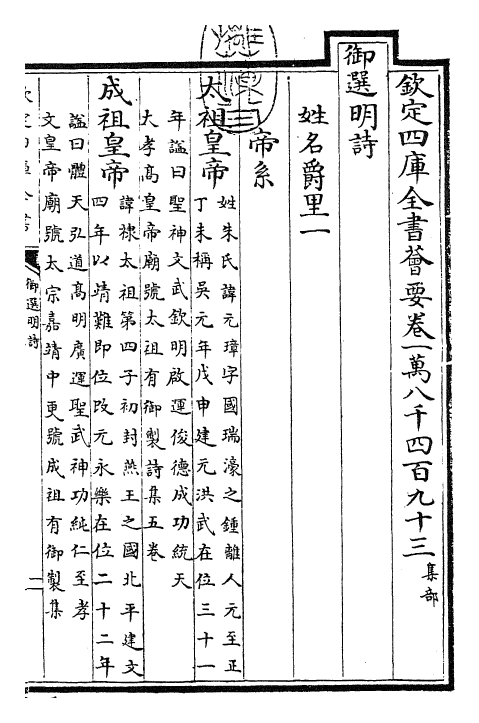 欽定四庫全書薈要卷一萬八千四百九十三 集部
御選明詩
姓名爵里一
帝系
太祖皇帝 姓朱氏諱元璋字國瑞濠之鍾離人元至正
丁未稱吳元年戊申建元洪武在位三十一
年謚曰聖神文武欽明啟運俊德成功統天
大孝髙皇帝廟號太祖有御製詩集五卷
成祖皇帝 諱棣太祖第四子初封燕王之國北平建文
四年以靖難即位改元永樂在位二十二年
謚曰體天弘道髙明廣運聖武神功純仁至孝
文皇帝廟號太宗嘉靖中更號成祖有御製集
御選明詩